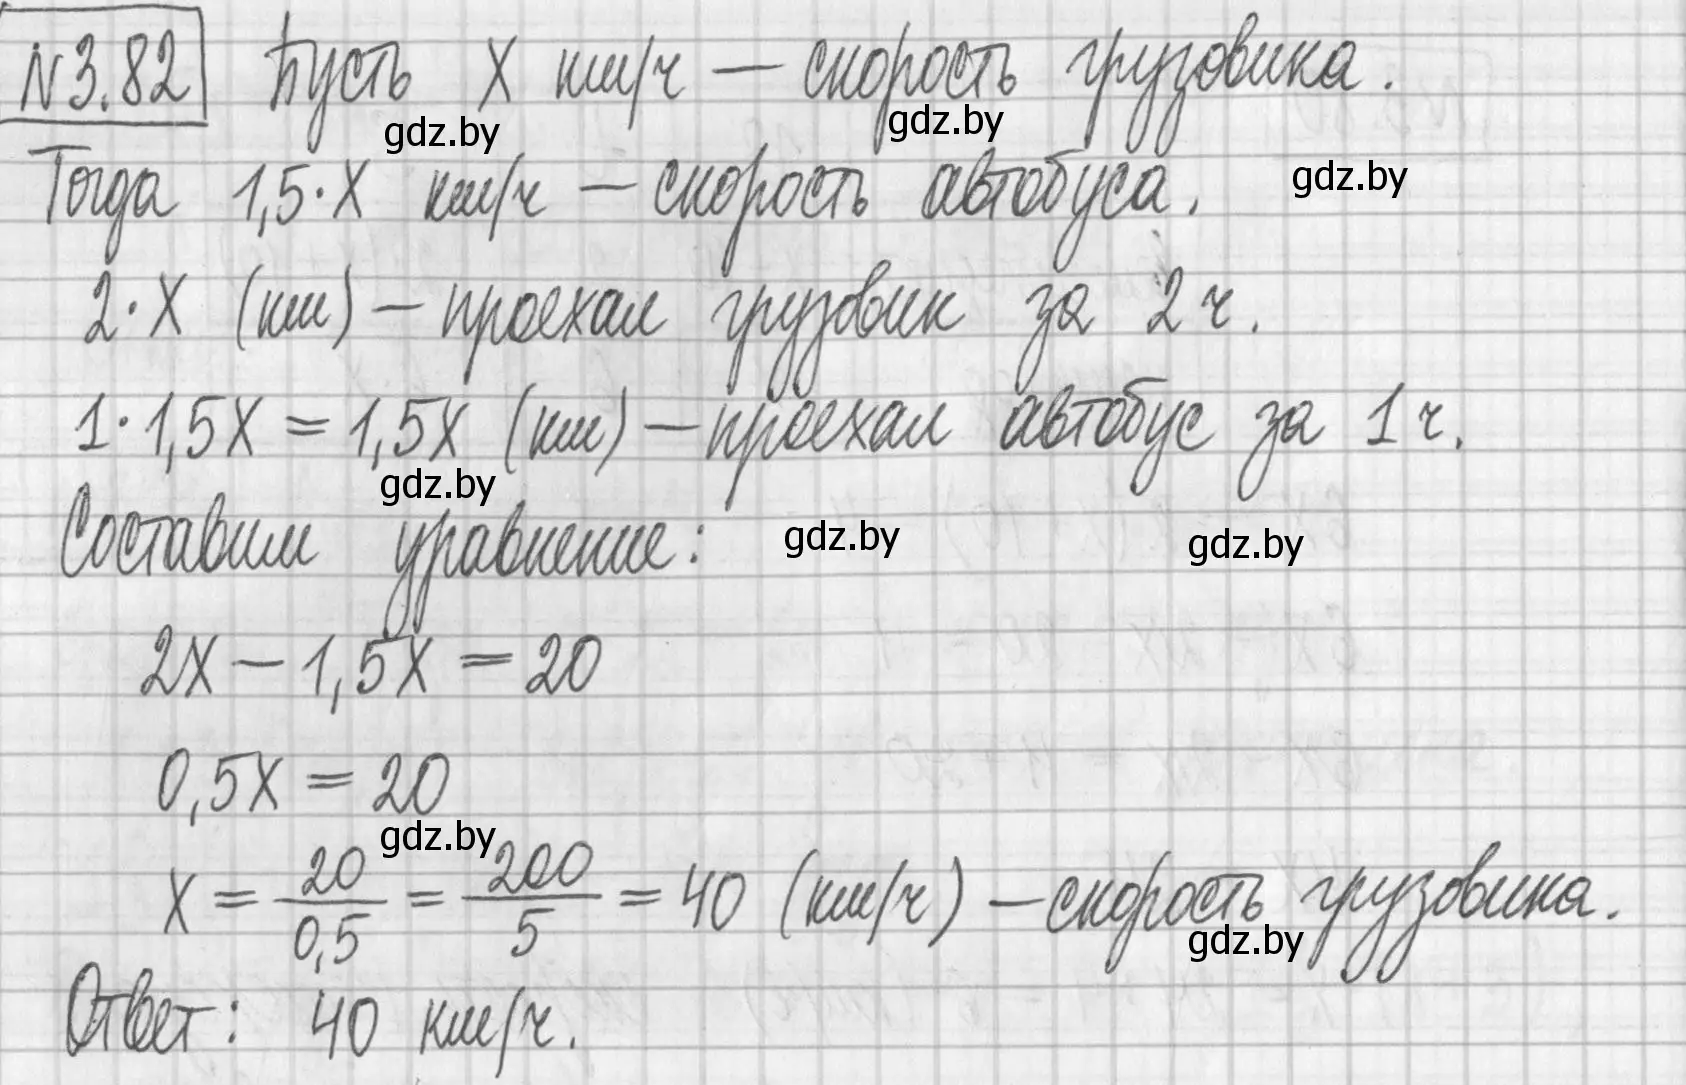 №3.82 Пусть х км/ч — скорость грузовика.
gdz.by gdz.by
Тогда 1,5·х км/ч — скорость автобуса. gdz.by
2·х (км) — проехал грузовик за 2 ч.
1·1,5х = 1,5х (км) — проехал автобус за 1 ч.
gdz.by
Составим уравнение: gdz.by gdz.by
2х — 1,5х = 20
0,5х = 20
gdz.by
х = 20/0,5 = 200/5 = 40 (км/ч) — скорость грузовика.
gdz.by
Ответ: 40 км/ч.